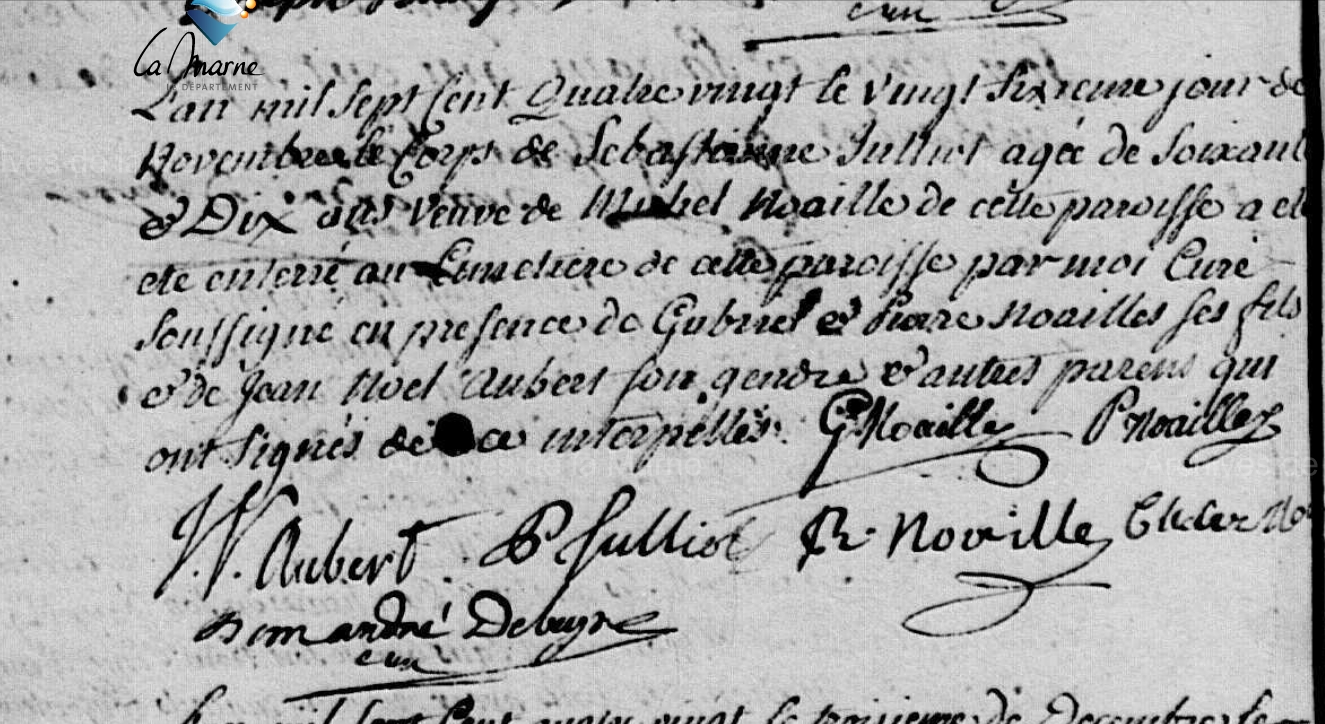 cure
La Marne
LE DÉPARTEMENT
L'an mil sept cent Quatre vingt le vingt sixieme jour de
Novembre le Corps de Sebastienne Julliot agée de soixante
& Dix ans veuve de Michel Noaille de cette paroisse a eté
eté enterré au Cimetiere de cette paroisse par moi Curé
soussigné en presence de Gabriel & Pierre Noailles ses fils
& de Jean Noel Aubert son gendre & autres parens qui
ont signés de ce interpellés. G Noaille P Noailles
Archives de la Marne
J. N. Aubert P Julliot R. Noaille
cure
L'an mil sept Cent quatre vingt le troisieme de Decembre